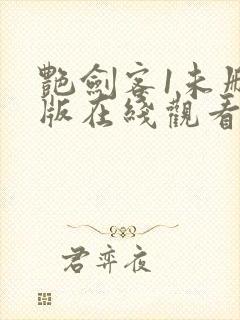 艷劍客1未刪
版在綫觀看
君弈夜